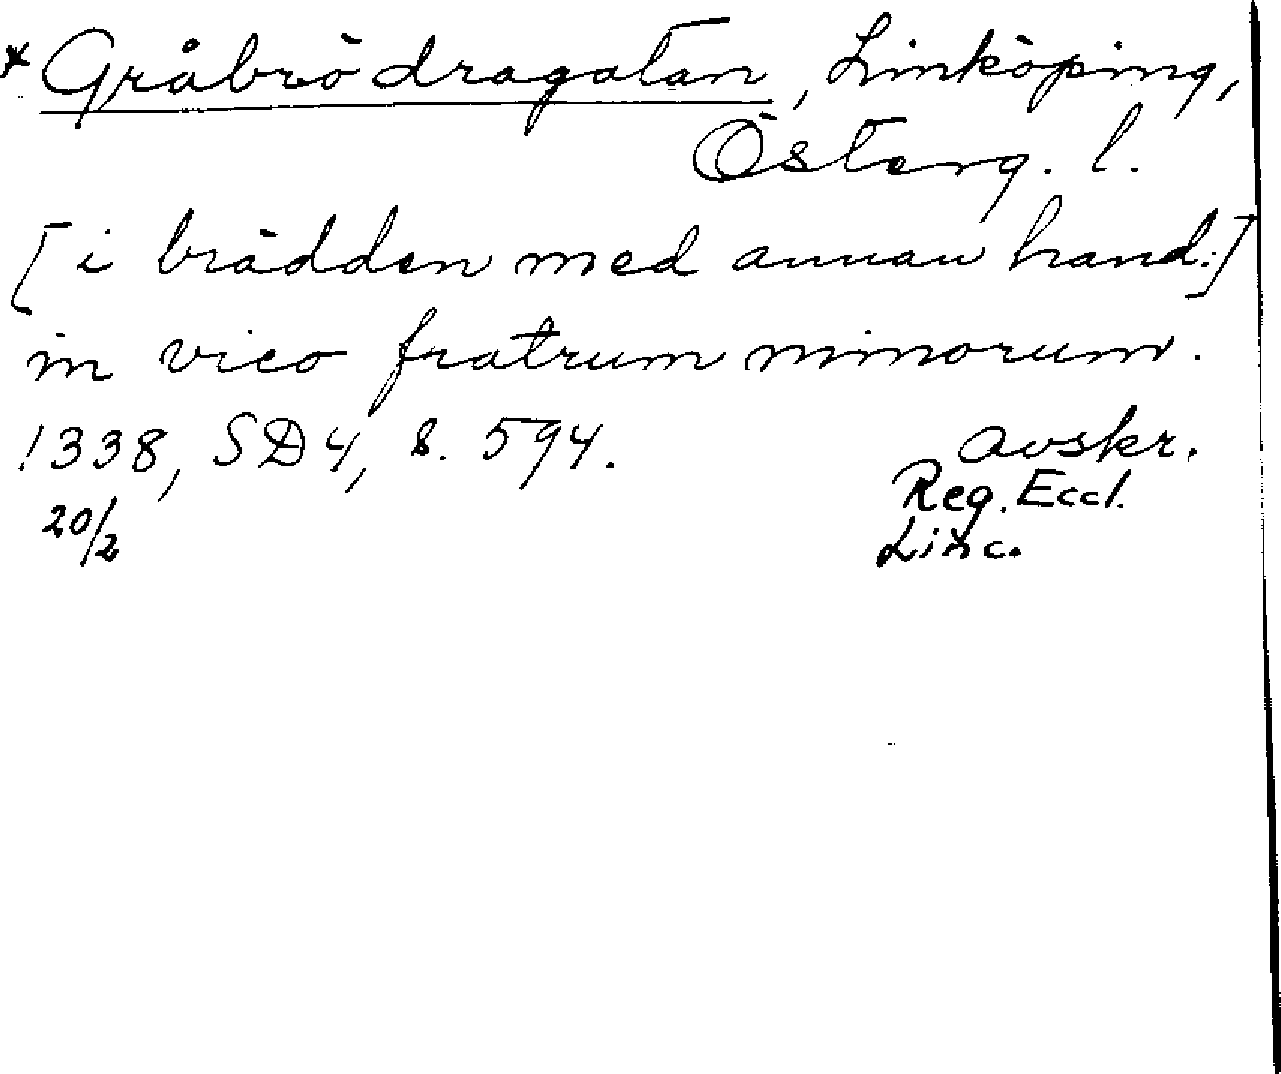 * Gråbrödragatan, Linköping,
Österg. l.
[i brädden med annan hand:]
in vico fratrum minorum.
1338, SD4, s. 594.
avskr.
20/2
Reg. Eccl.
Linc.